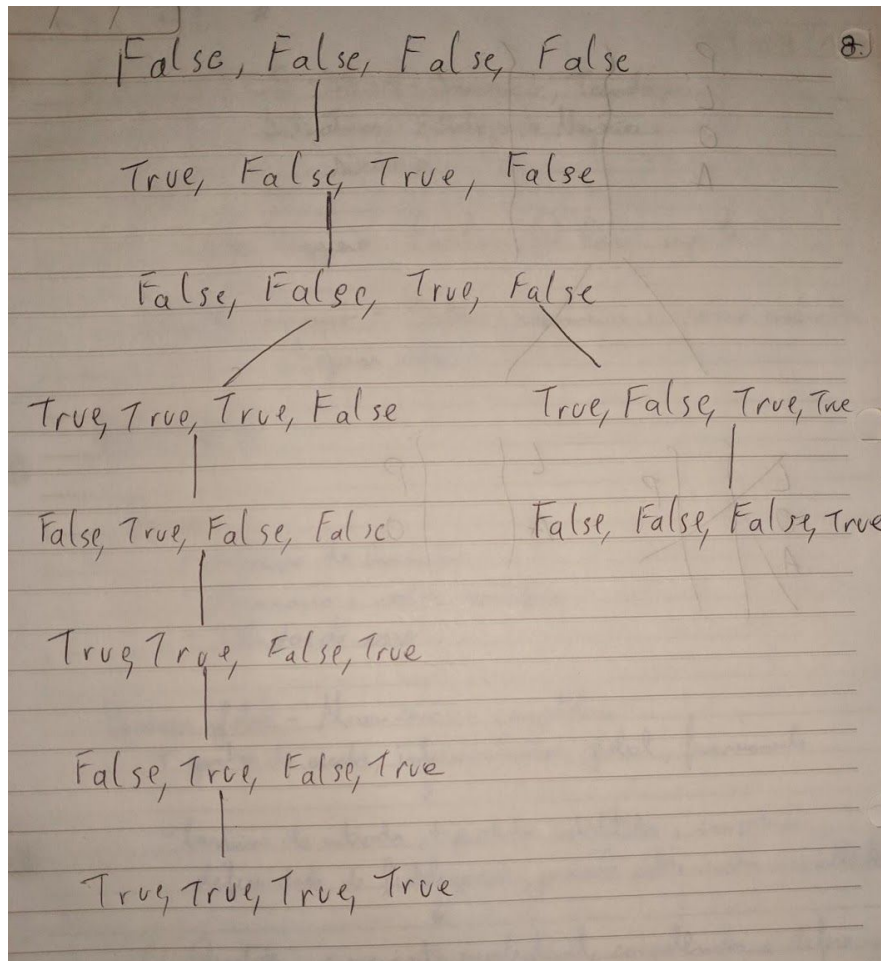 8.
False, False, False, False
True, False, True, False
False, False, True, False
True, True, True, False
True, False, True, True
False, True, False, False
False, False, False, True
True, True, False, True
False, True, False, True
True, True, True, True